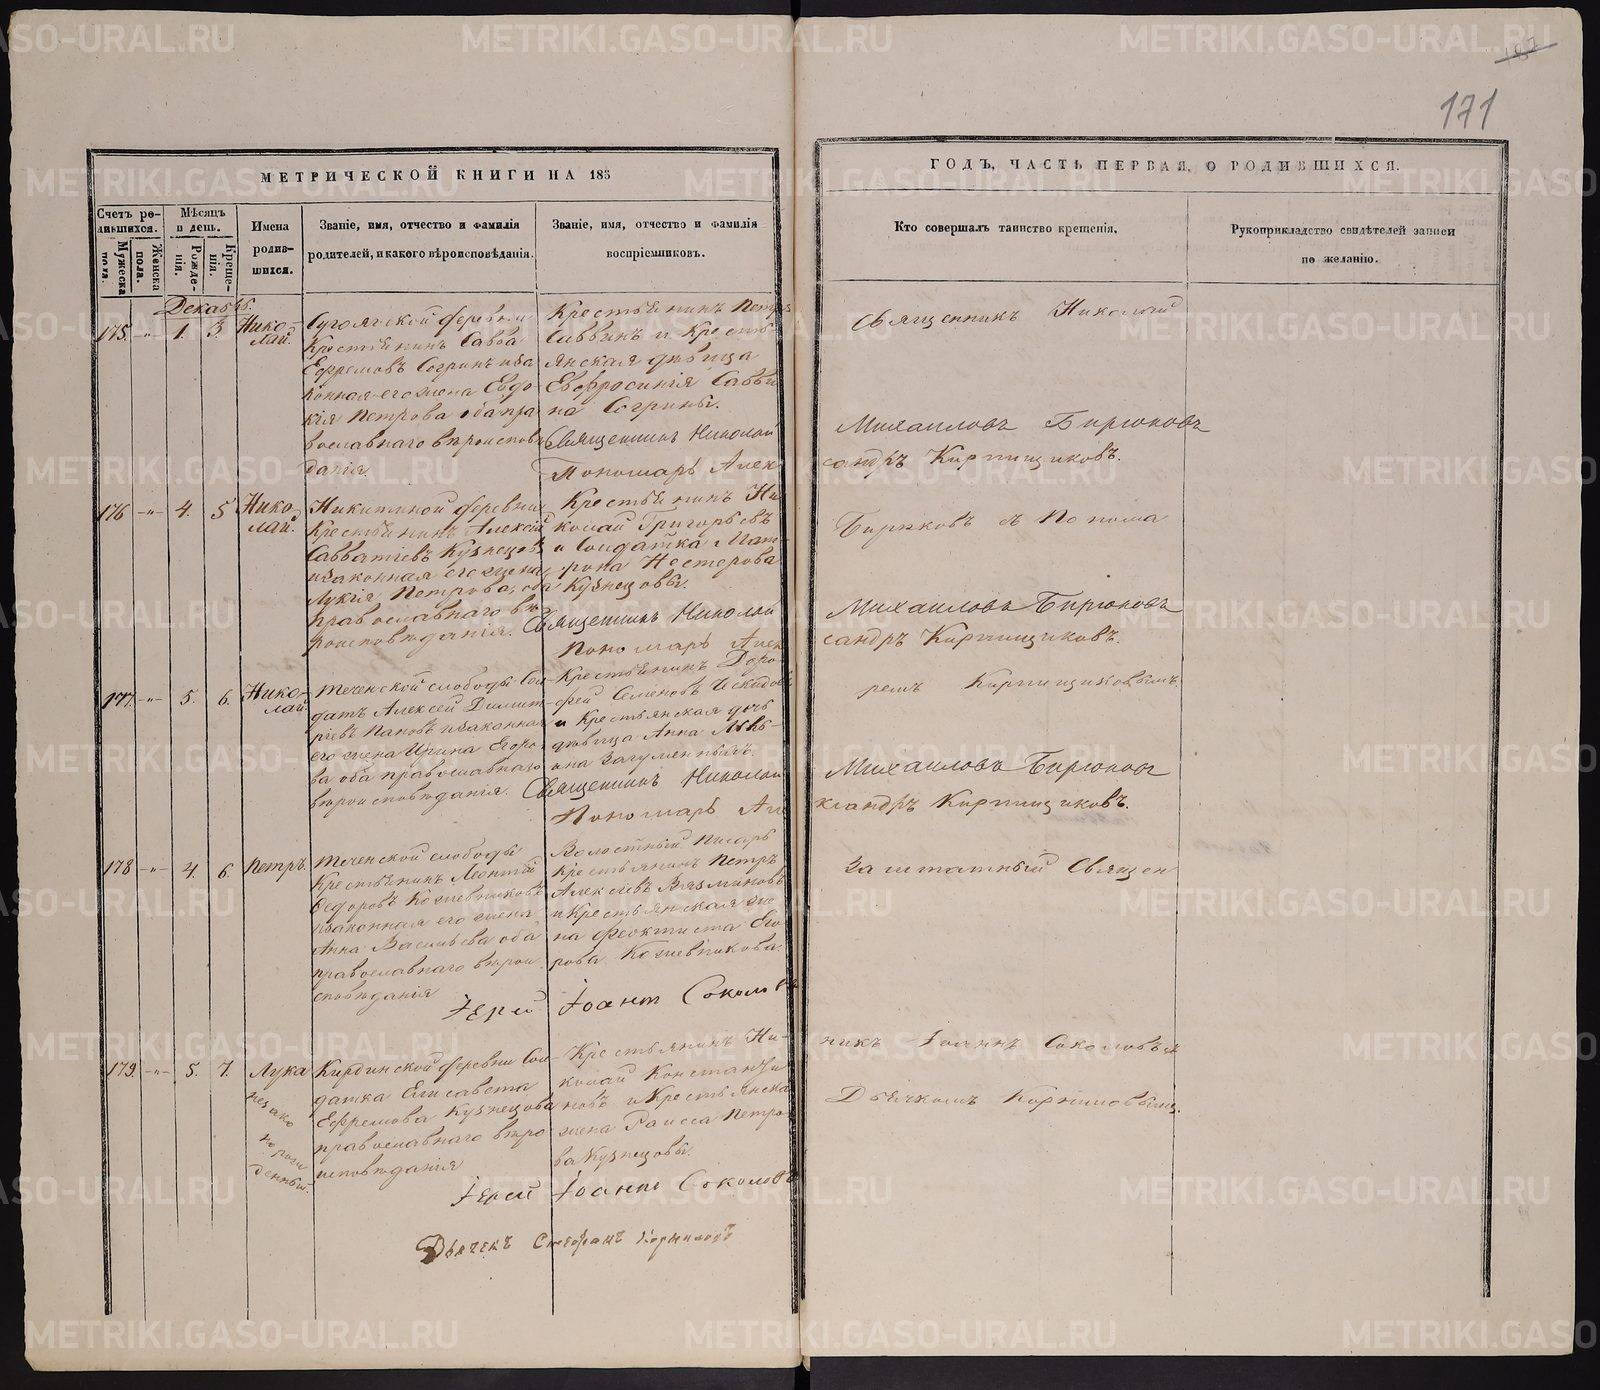 171
МЕТРИЧЕСКОЙ КНИГИ НА 185
ГОДЪ, ЧАСТЬ ПЕРВАЯ, О РОДИВШИХСЯ.
Счетъ родившихся.
Мужеска пола.
Женска пола.
Мѣсяцъ и день.
Рожденія.
Крещенія.
Имена родившихся.
Званіе, имя, отчество и фамилія
родителей, и какого вѣроисповѣданія.
Званіе, имя, отчество и фамилія
воспріемниковъ.
Кто совершалъ таинство крещенія.
Рукоприкладство свидѣтелей записи
по желанію.
Декабрь.
175. -"- 1. 3. Николай.
деревни
Крестьянинъ Савва
Ефремовъ Согринъ и за
конная его жена Евдо
кія Петрова оба пра
вославнаго вѣроисповѣ
данія.
Крестьянинъ Петръ
Саввинъ и Кресть
янская дѣвица
Евфросинія Савви
на Согрины.
Священникъ Николай
Священникъ Николай Михаиловъ Бирюковъ
Пономарь Александръ Кирпищиковъ.
176 -"- 4. 5 Николай.
Никитиной деревни
Крестьянинъ Алексѣй
Савватіевъ Кузнецовъ
и законная его жена
Лукія Петрова, оба
православнаго вѣ
роисповѣданія.
Крестьянинъ Ни
колай Григорьевъ
и Солдатка Мат
рона Нестерова
Кузнецовы.
Бирюковъ съ Понома
Священникъ Николай Михаиловъ Бирюковъ
Пономарь Александръ Кирпищиковъ.
177. -"- 5. 6. Николай.
Теченской слободы Сол
датъ Алексѣй Димит
ріевъ Пановъ и законная
его жена Ирина Егоро
ва оба православнаго
вѣроисповѣданія.
Крестьянинъ Доро
фей Семеновъ
и Крестьянская дочь
дѣвица Анна Льво
на
ремъ Кирпищиковымъ
Священникъ Николай Михаиловъ Бирюковъ
Пономарь Александръ Кирпищиковъ.
178 -"- 4. 6. Петръ.
Теченской слободы
Крестьянинъ Леонтій
Федоровъ Кожевниковъ
и законная его жена
Анна Васильева оба
православнаго вѣрои
сповѣданія
Волостный Писарь
Крестьянинъ Петръ
Алексѣевъ Вязминовъ
и Крестьянская же
на Феоктиста Его
рова Кожевникова.
заштатный Священ
Іерей Іоаннъ Соколовъ
179. -"- 5. 7. Лука
незако
норож
денный.
Кирдинской деревни Сол
датка Елисавета
Ефремова Кузнецова
православнаго вѣро
исповѣданія
Крестьянинъ Ни
колай Константи
новъ и Крестьянска
жена Раисса Петро
ва Кузнецовы.
никъ Іоаннъ Соколовъ съ
Дьячкомъ Корниловымъ.
Іерей Іоаннъ Соколовъ
Дьячекъ Стефанъ Корниловъ
METRIKI.GASO-URAL.RU